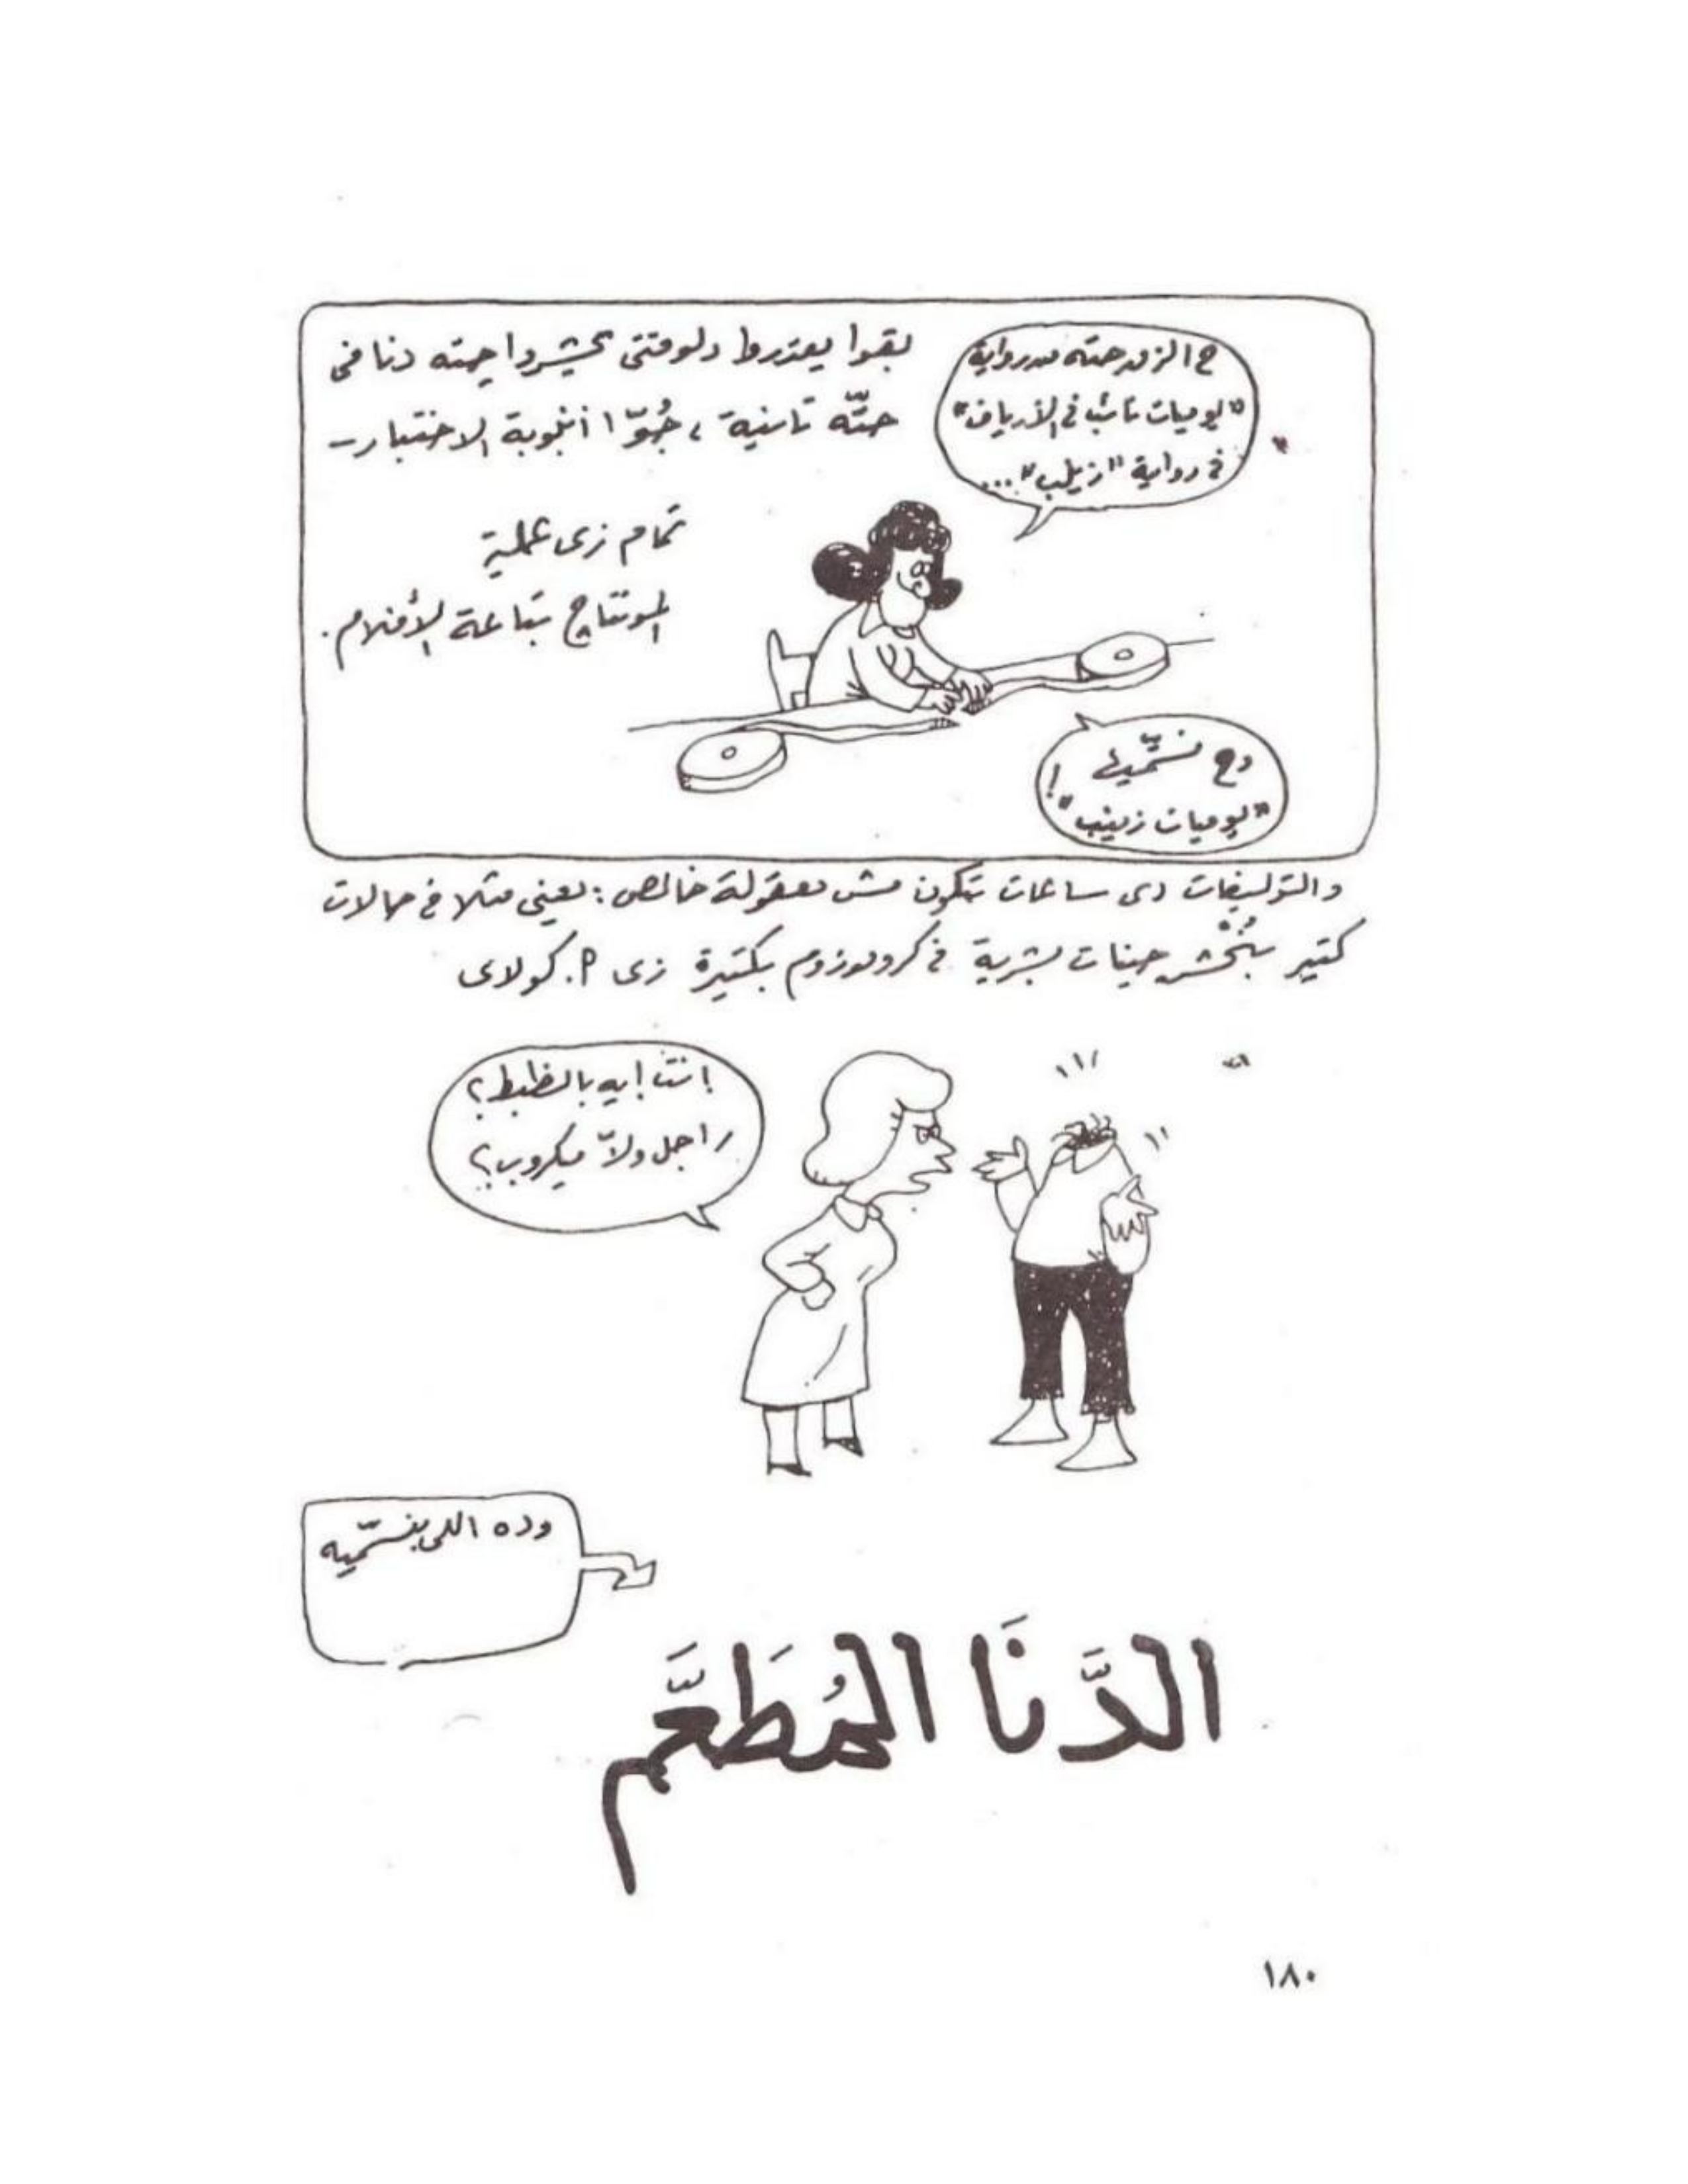 بقوا يعتدروا دلوقتى يحشروا حته دنا فى
حتّه تانية، جُوّا أنبوبة الاختبار -
تمام زى عملية
المونتاج بتاعة الأفلام.
ح الزق حته من رواية
"يوميات نائب فى الأرياف"
فى رواية "زينب"...
وح نسمّيها
"يوميات زينب"!
والتوليفات دى ساعات بتكون مش معقولة خالص: يعنى مثلا فى حالات
كتير بنُحْشر جينات بشرية فى كروموزوم بكتيرة زى P. كولاى
إنتا إيه بالظبط؟
راجل ولاّ ميكروب؟
وده اللى بنسمّيه
الدَّنَا المُطَعَّم
١٨٠